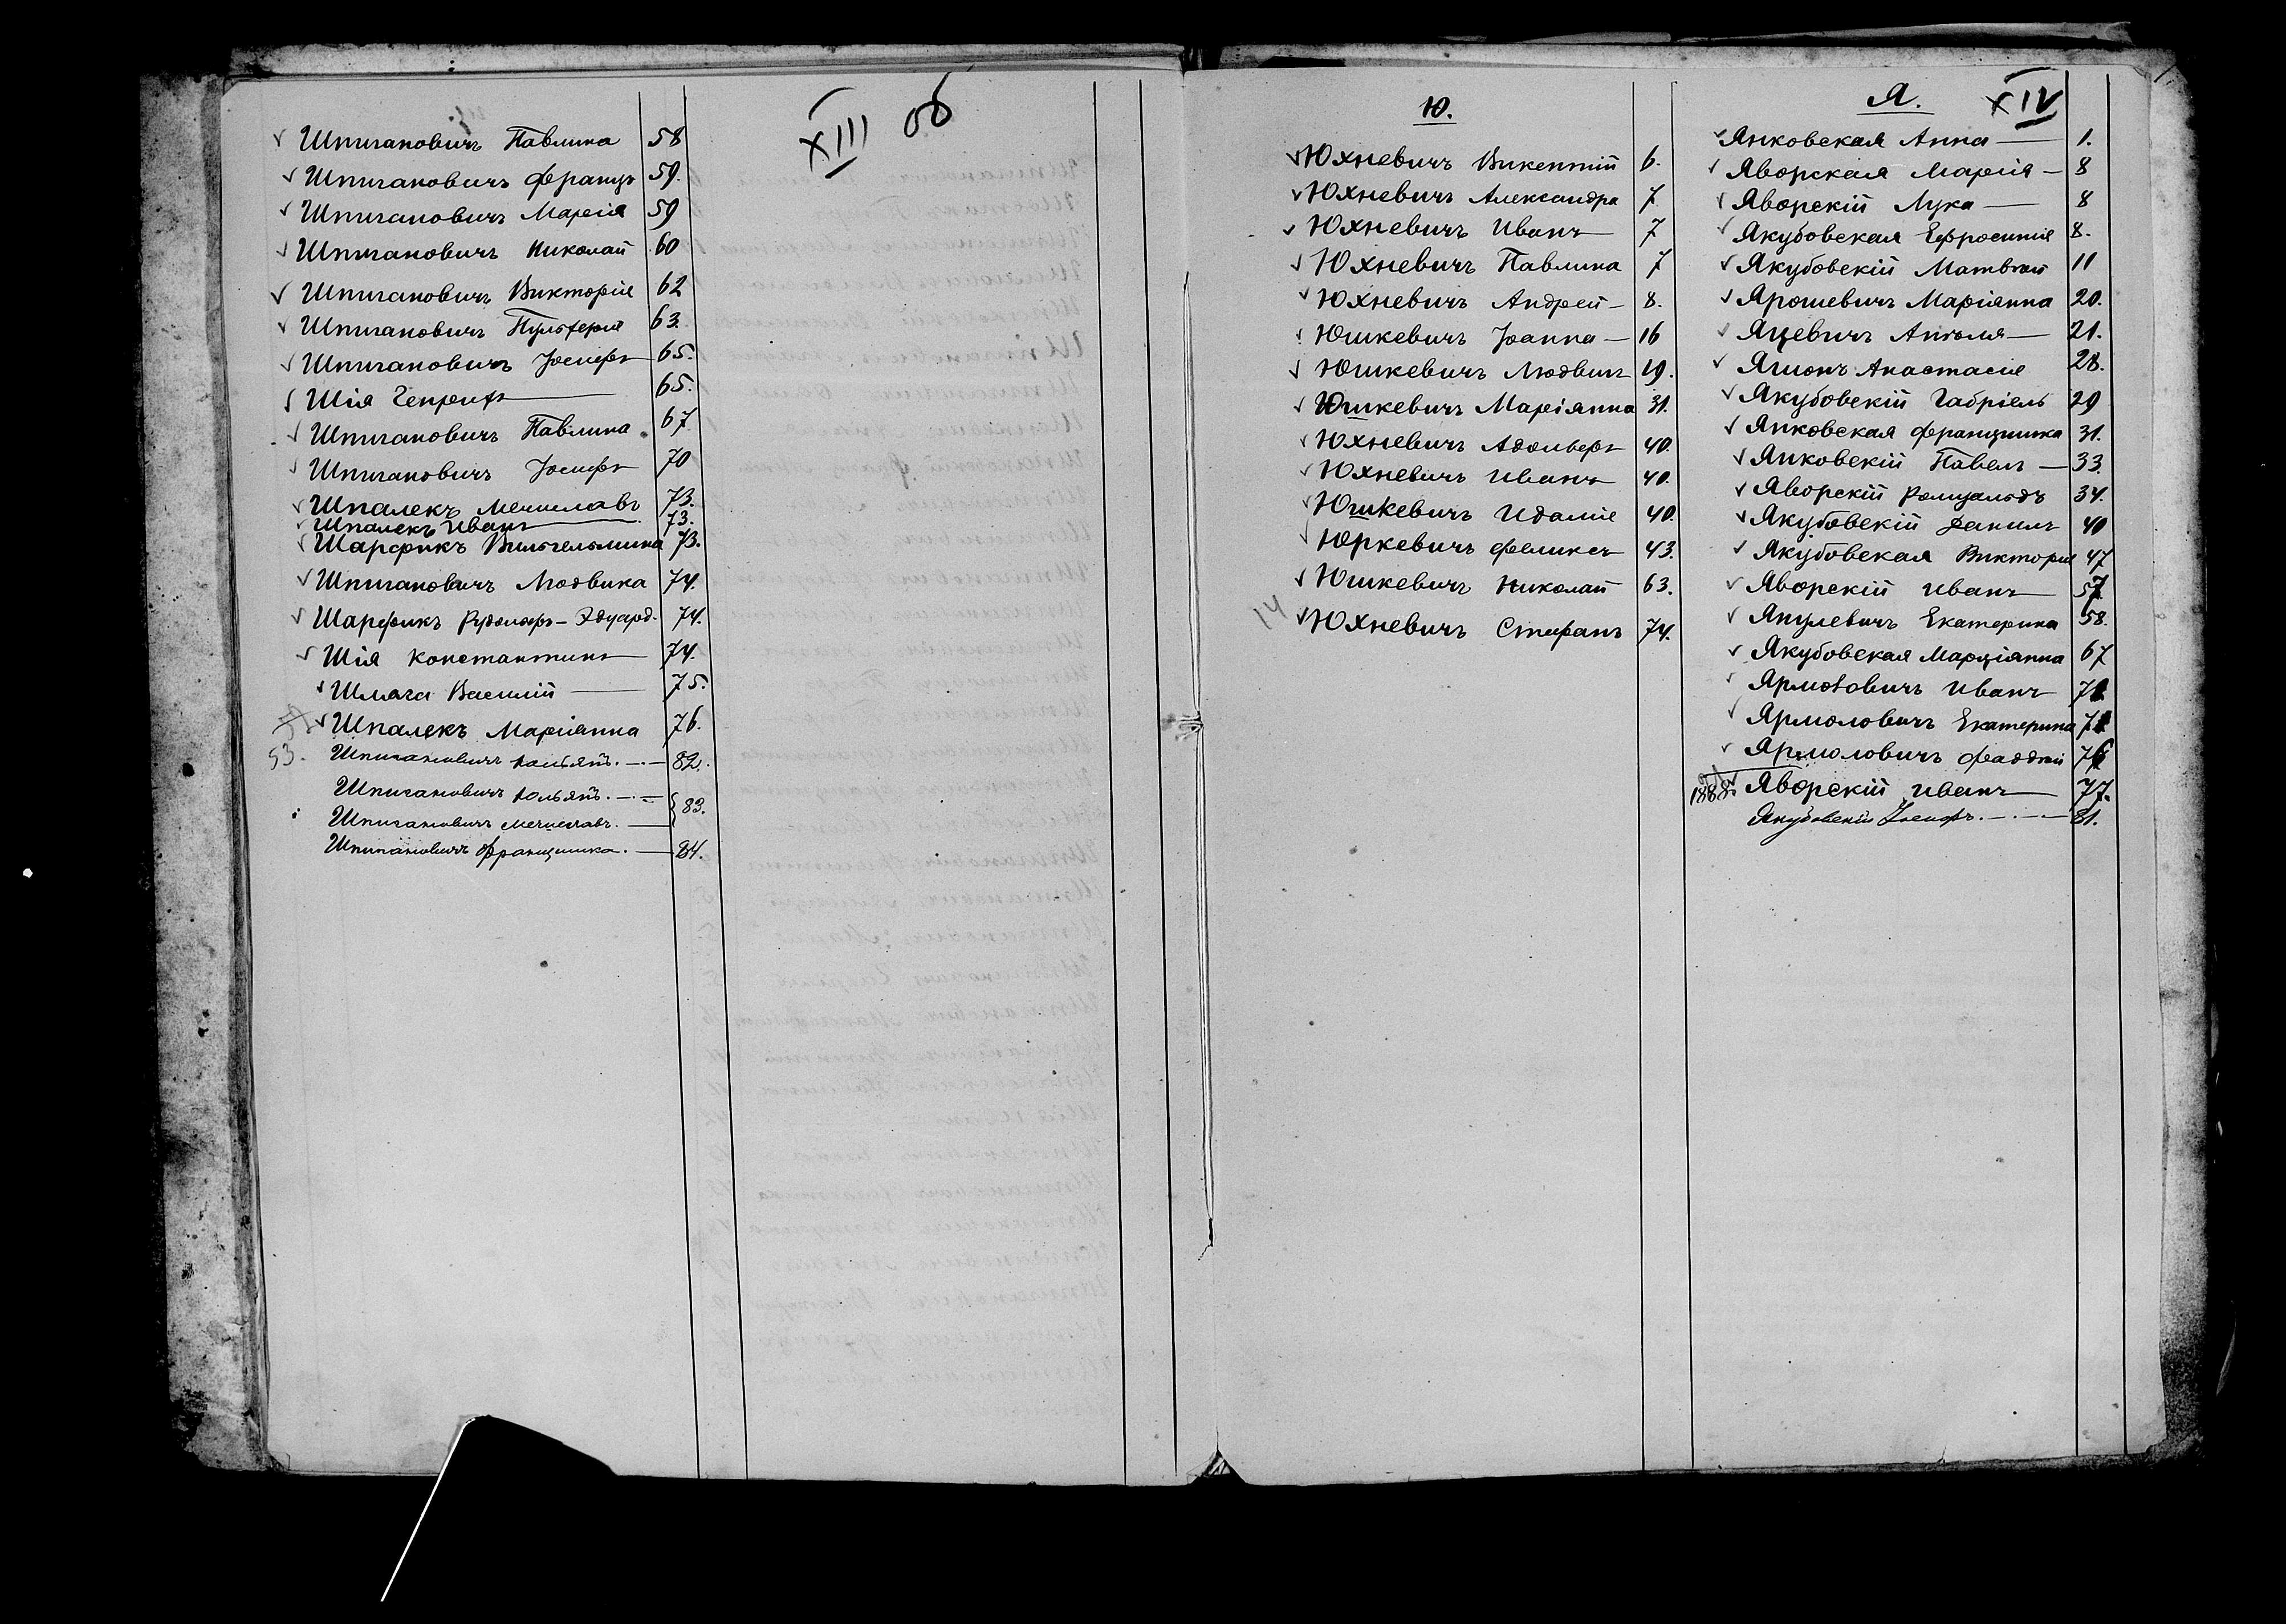 XIII об
Шпигановичъ Павлина 58
Шпигановичъ Францъ 59.
Шпигановичъ Марія 59
Шпигановичъ Николай 60
Шпигановичъ Викторія 62
Шпигановичъ Пульхерія 63.
Шпигановичъ Іосифъ 65.
Шія Генрихъ 65.
Шпигановичъ Павлина 67.
Шпигановичъ Іосифъ 70
Шпалекъ Мечиславъ 73.
Шпалекъ Иванъ 73.
Шарфикъ Вильгельмина 73.
Шпигановичъ Людвика 74.
Шарфикъ Рудольфъ-Эдуард. 74.
Шія Константинъ 74.
Шмага Василій 75.
Шпалекъ Маріянна 76.
53. Шпигановичъ 82.
Шпигановичъ Юльянъ. 83.
Шпигановичъ Мечиславъ.
Шпигановичъ Францишка. 84.
Ю.
Юхневичъ Викентій 6.
Юхневичъ Александра 7
Юхневичъ Иванъ 7
Юхневичъ Павлина 7
Юхневичъ Андрей 8.
Юшкевичъ Іоанна 16
Юшкевичъ Людвигъ 19.
Юшкевичъ Маріянна 31.
Юхневичъ Адольфъ 40.
Юхневичъ Иванъ 40.
Юшкевичъ Идалія 40.
Юркевичъ Феликсъ 43.
Юшкевичъ Николай 63.
14 Юхневичъ Стефанъ 74.
Я. XIV
Янковская Анна 1.
Яворская Марія 8
Яворскій Лука 8
Якубовская Ефросинія 8.
Якубовскій Матвѣй 11
Ярошевичъ Маріянна 20.
Яцевичъ Анѣля 21.
Ягионъ Анастасія 28.
Якубовскій Габріель 29
Янковская Францишка 31.
Янковскій Павелъ 33.
Яворскій Ромуальдъ 34.
Якубовскій Данилъ 40
Якубовская Викторія 47
Яворскій Иванъ 57
Янулевичъ Екатерина 58.
Якубовская Марціянна 67
Ярмоловичъ Иванъ
Ярмоловичъ Екатерина
Ярмоловичъ Фаддей 76
1888. Яворскій Иванъ 77.
Якубовскій Іосифъ. 81.